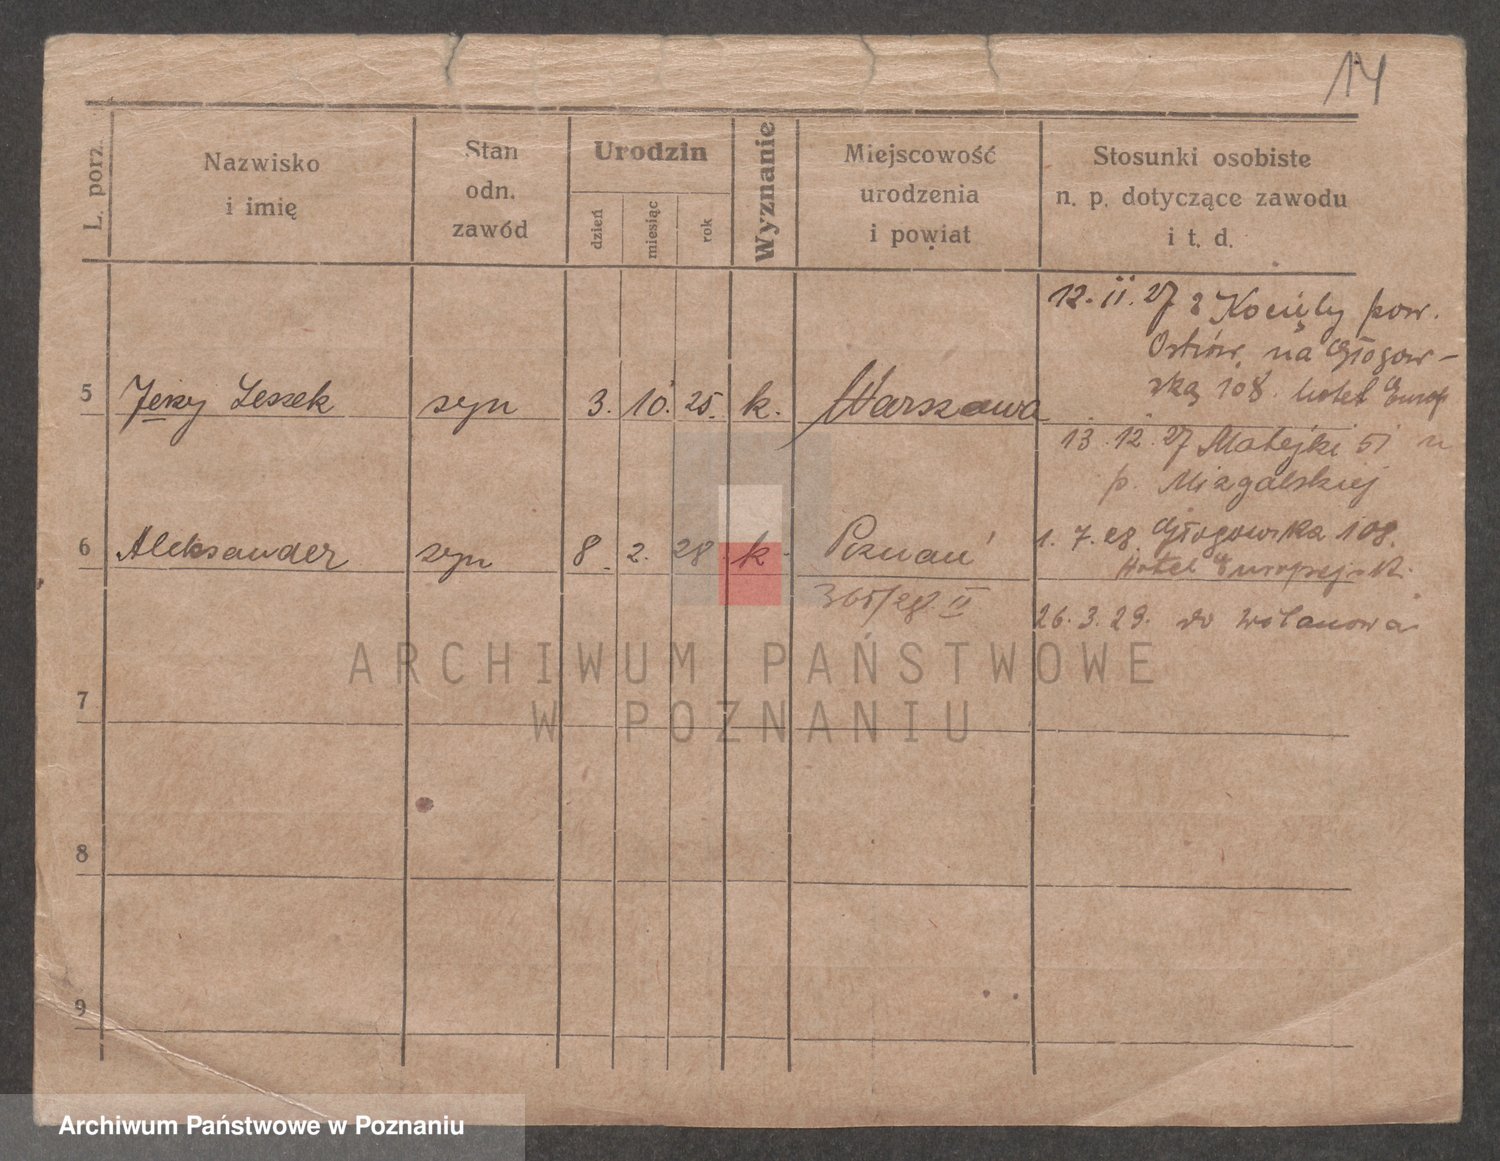 14
L. porz.
Nazwisko
i imię
Stan
odn.
zawód
Urodzin
dzień
miesiąc
rok
Wyznanie
Miejscowość
urodzenia
i powiat
Stosunki osobiste
n. p. dotyczące zawodu
i t. d.
12. 11. 27 z Kocięby pow.
Ostrów, na Głogow-
ską 108. hotel Europ
5 Jerzy Leszek syn 3. 10. 25. k. Warszawa
13. 12. 27 Matejki 51 u
p. Mizgalskiej
6 Aleksander syn 8. 2. 28 k. Poznań
1. 7. 28 Głogowska 108.
Hotel Europejski.
365/28. II
26. 3. 29. do Wolanowa
7
8
9
ARCHIWUM PAŃSTWOWE
W POZNANIU
Archiwum Państwowe w Poznaniu